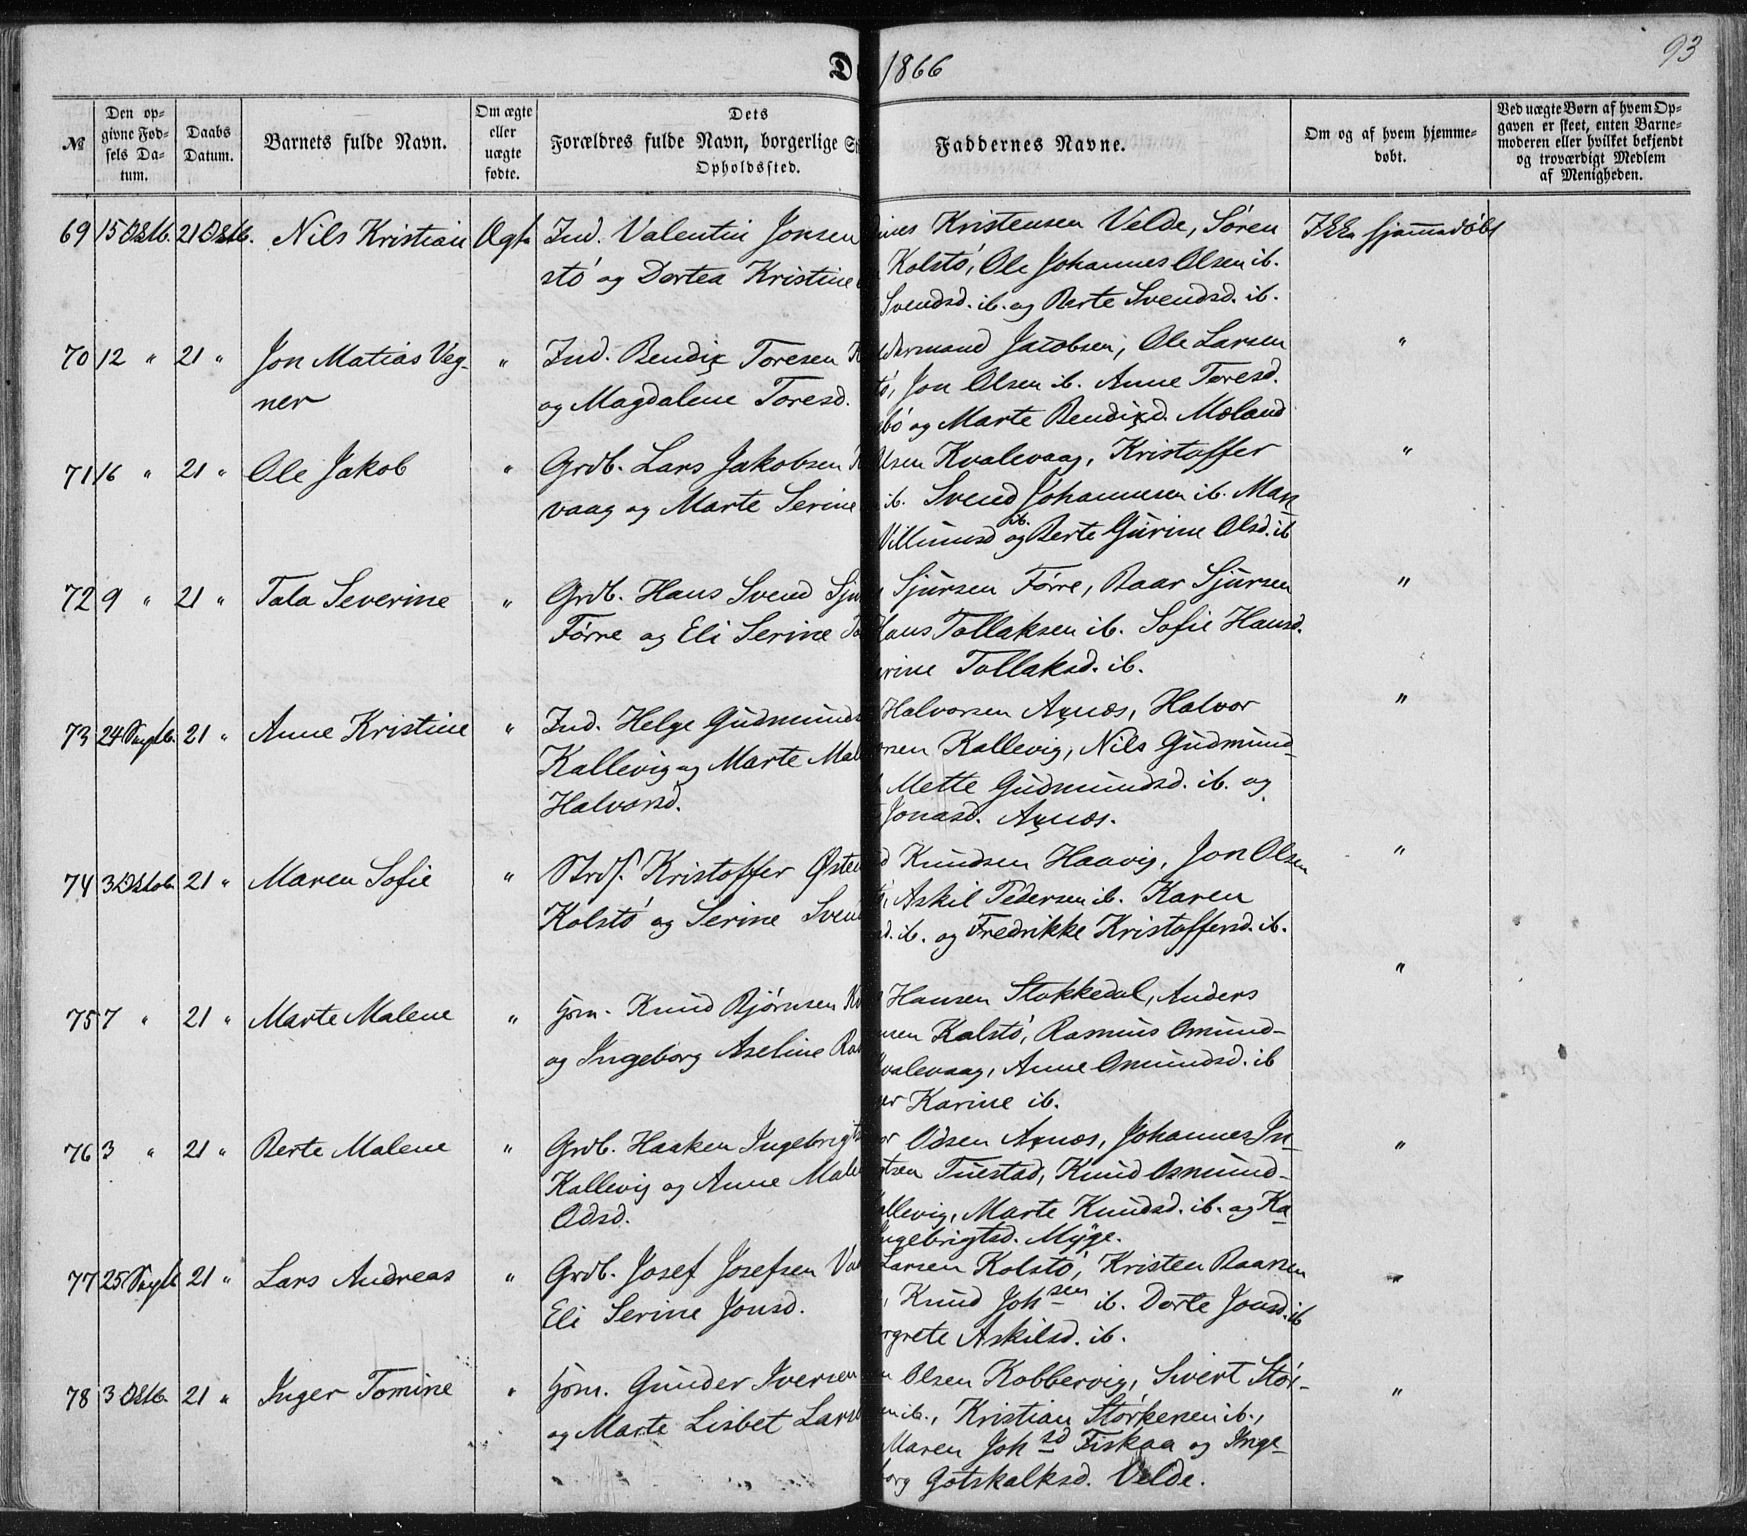 1866
93
№
Den op-
givne Fød-
sels Da-
tum.
Daabs
Datum.
Barnets fulde Navn.
Om ægte
eller
uægte
fødte.
Dets
Forældres fulde Navn, borgerlige
Opholdssted.
Faddernes Navne.
Om og af hvem hjemme-
døbt.
Ved uægte Børn af hvem Op-
gaven er skeet, enten Barne-
moderen eller hvilket bekjendt
og troværdigt Medlem
af Menigheden.
69 15 Oktb. 21 Oktb. Nils Kristian Ægte Ind. Valentin Jonsen
stø og Dortea Kristine
Kristensen Velde, Søren
Kolstø, Ole Johannes Olsen ib.
Svendsd. ib. og Berte Svendsd. ib.
Ikke hjemmedøbt
70 12 " 21 " Jon Matias Veg-
ner
" Ind. Bendix Toresen
og Magdalene Toresd.
Jacobsen, Ole Larsen
Jon Olsen ib. Anne Toresd.
bø og Marte Bendixd. Mæland
"
71 16 " 21 " Ole Jakob " Grdb. Lars Jakobsen
vaag og Marte Serine
Olsen Kvalevaag, Kristoffer
ib. Svend Johannesen ib. Mari
Villumsd ib. og Berte Gurine Olsd. ib
"
72 9 " 21 " Tala Severine " Grdb. Hans Svend
Førre og Eli Serine
Sjursen Førre, Baar Sjursen
Hans Tollaksen ib. Sofie Hansd.
rine Tollaksd. ib.
"
73 24 Septb. 21 " Anne Kristine " Ind. Helge Gudmunds
Kallevig og Marte Mal
Halvorsd.
Halvorsen Axnæs, Halvor
rsen Kallevig, Nils Gudmund-
Mette Gudmundsd. ib. og
Jonasd. Axnæs.
"
74 3 Oktob. 21 " Maren Sofie " Strds. Kristoffer Østen
Kolstø og Serine Svend
Knudsen Haavig, Jon Olsen
Askil Pedersen ib. Karen
ib. og Fredrikke Kristoffersd. ib.
"
75 7 " 21 " Marte Malene " Hsm. Knud Bjørnsen
og Ingeborg Aseline
Hansen Stokkedal, Anders
sen Kolstø, Rasmus Omund-
valevaag, Anne Omundsd. ib
er Karine ib.
"
76 3 " 21 " Berte Malene " Grdb. Haaken Ingebrigts
Kallevig og Anne Male
Odsd.
or Odsen Axnæs, Johannes In-
gtsen Tuestad, Knud Osmund-
allevig, Marte Knudsd. ib. og Ka-
ngebrigtsd. Myge.
"
77 25 Septb 21 " Lars Andreas " Grdb. Josef Josefsen
Eli Serine Jonsd.
Larsen Kolstø, Kristen Baarsen
Knud Johsen ib. Dorte Jonsd. ib
rgrete Askilsd. ib.
"
78 3 Oktb. 21 " Inger Tomine " Hsm. Gunder Iversen
og Marte Lisbet Larsd
Olsen Kobbervig, Sivert Stør-
en ib., Kristian Størkersen ib.,
Maren Johsd Fiskaa og Inge-
borg Gotskalksd. Velde.
"